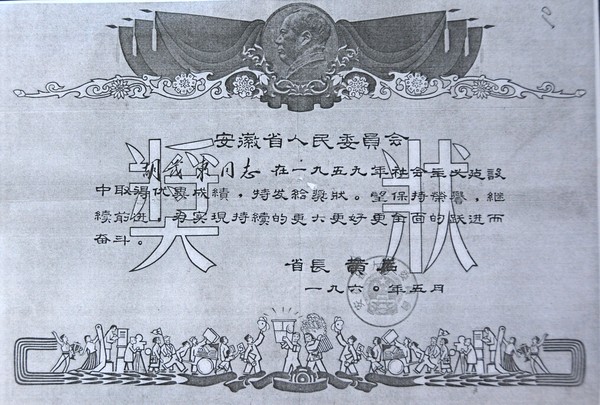 安徽省人民委員会
奨狀
同志 在一九五九年社会主义建設
中取得优異成績，特发給奨狀。望保持榮譽，継
続前进，为实現持續的更大更好更全面的跃进而
奋斗。
省長 黄
一九六〇年五月